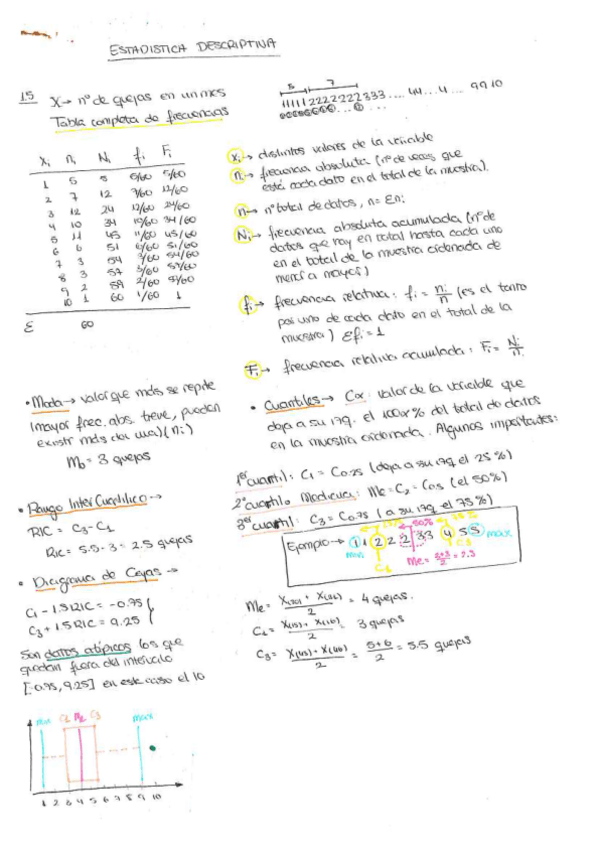 ESTADISTICA DESCRIPTIVA
15 X → nº de quejas en un mes
Tabla completa de frecuencias
5 7
111112222222333.... 44...4... 9910
xi ni Ni fi Fi
1 5 5 5/60 5/60
2 7 12 7/60 12/60
3 12 24 12/60 24/60
4 10 34 10/60 34/60
5 11 45 11/60 45/60
6 6 51 6/60 51/60
7 3 54 3/60 54/60
8 3 57 3/60 57/60
9 2 59 2/60 59/60
10 1 60 1/60 1
Σ 60
xi → distintos valores de la variable
ni → frecuencia absoluta (nº de veces que
está cada dato en el total de la muestra).
n → nº total de datos, n = Σni
Ni → frecuencia absoluta acumulada (nº de
datos que hay en total hasta cada uno
en el total de la muestra ordenada de
menor a mayor)
fi → frecuencia relativa: fi = ni/n (es el tanto
por uno de cada dato en el total de la
muestra) Σfi = 1
Fi → frecuencia relativa acumulada: Fi = Ni/n
• Moda → valor que más se repite
(mayor frec. abs. tiene, pueden
existir más de una) (ni)
Mo = 3 quejas
• Cuantiles → Cα: valor de la variable que
deja a su izq. el 100α% del total de datos
en la muestra ordenada. Algunos importantes:
1er cuartil: C1 = C0.25 (deja a su izq el 25%)
2º cuartil o Mediana: Me = C2 = C0.5 (el 50%)
3er cuartil: C3 = C0.75 (a su izq el 75%)
• Rango Intercuartílico →
RIC = C3 - C1
RIC = 5.5 - 3 = 2.5 quejas
50%
Ejemplo → 1 1 2 2 2 2 3 3 4 5 5 max
min C1 C3
• Diagrama de Cajas →
C1 - 1.5RIC = -0.75
C3 + 1.5RIC = 9.25
Son datos atípicos los que
quedan fuera del intervalo
[-0.75, 9.25] en este caso el 10
Me = X(30) + X(31) / 2 = 4 quejas.
C1 = X(15) + X(16) / 2 = 3 quejas
C3 = X(45) + X(46) / 2 = 5+6 / 2 = 5.5 quejas
min C1 Me C3 max
1 2 3 4 5 6 7 8 9 10